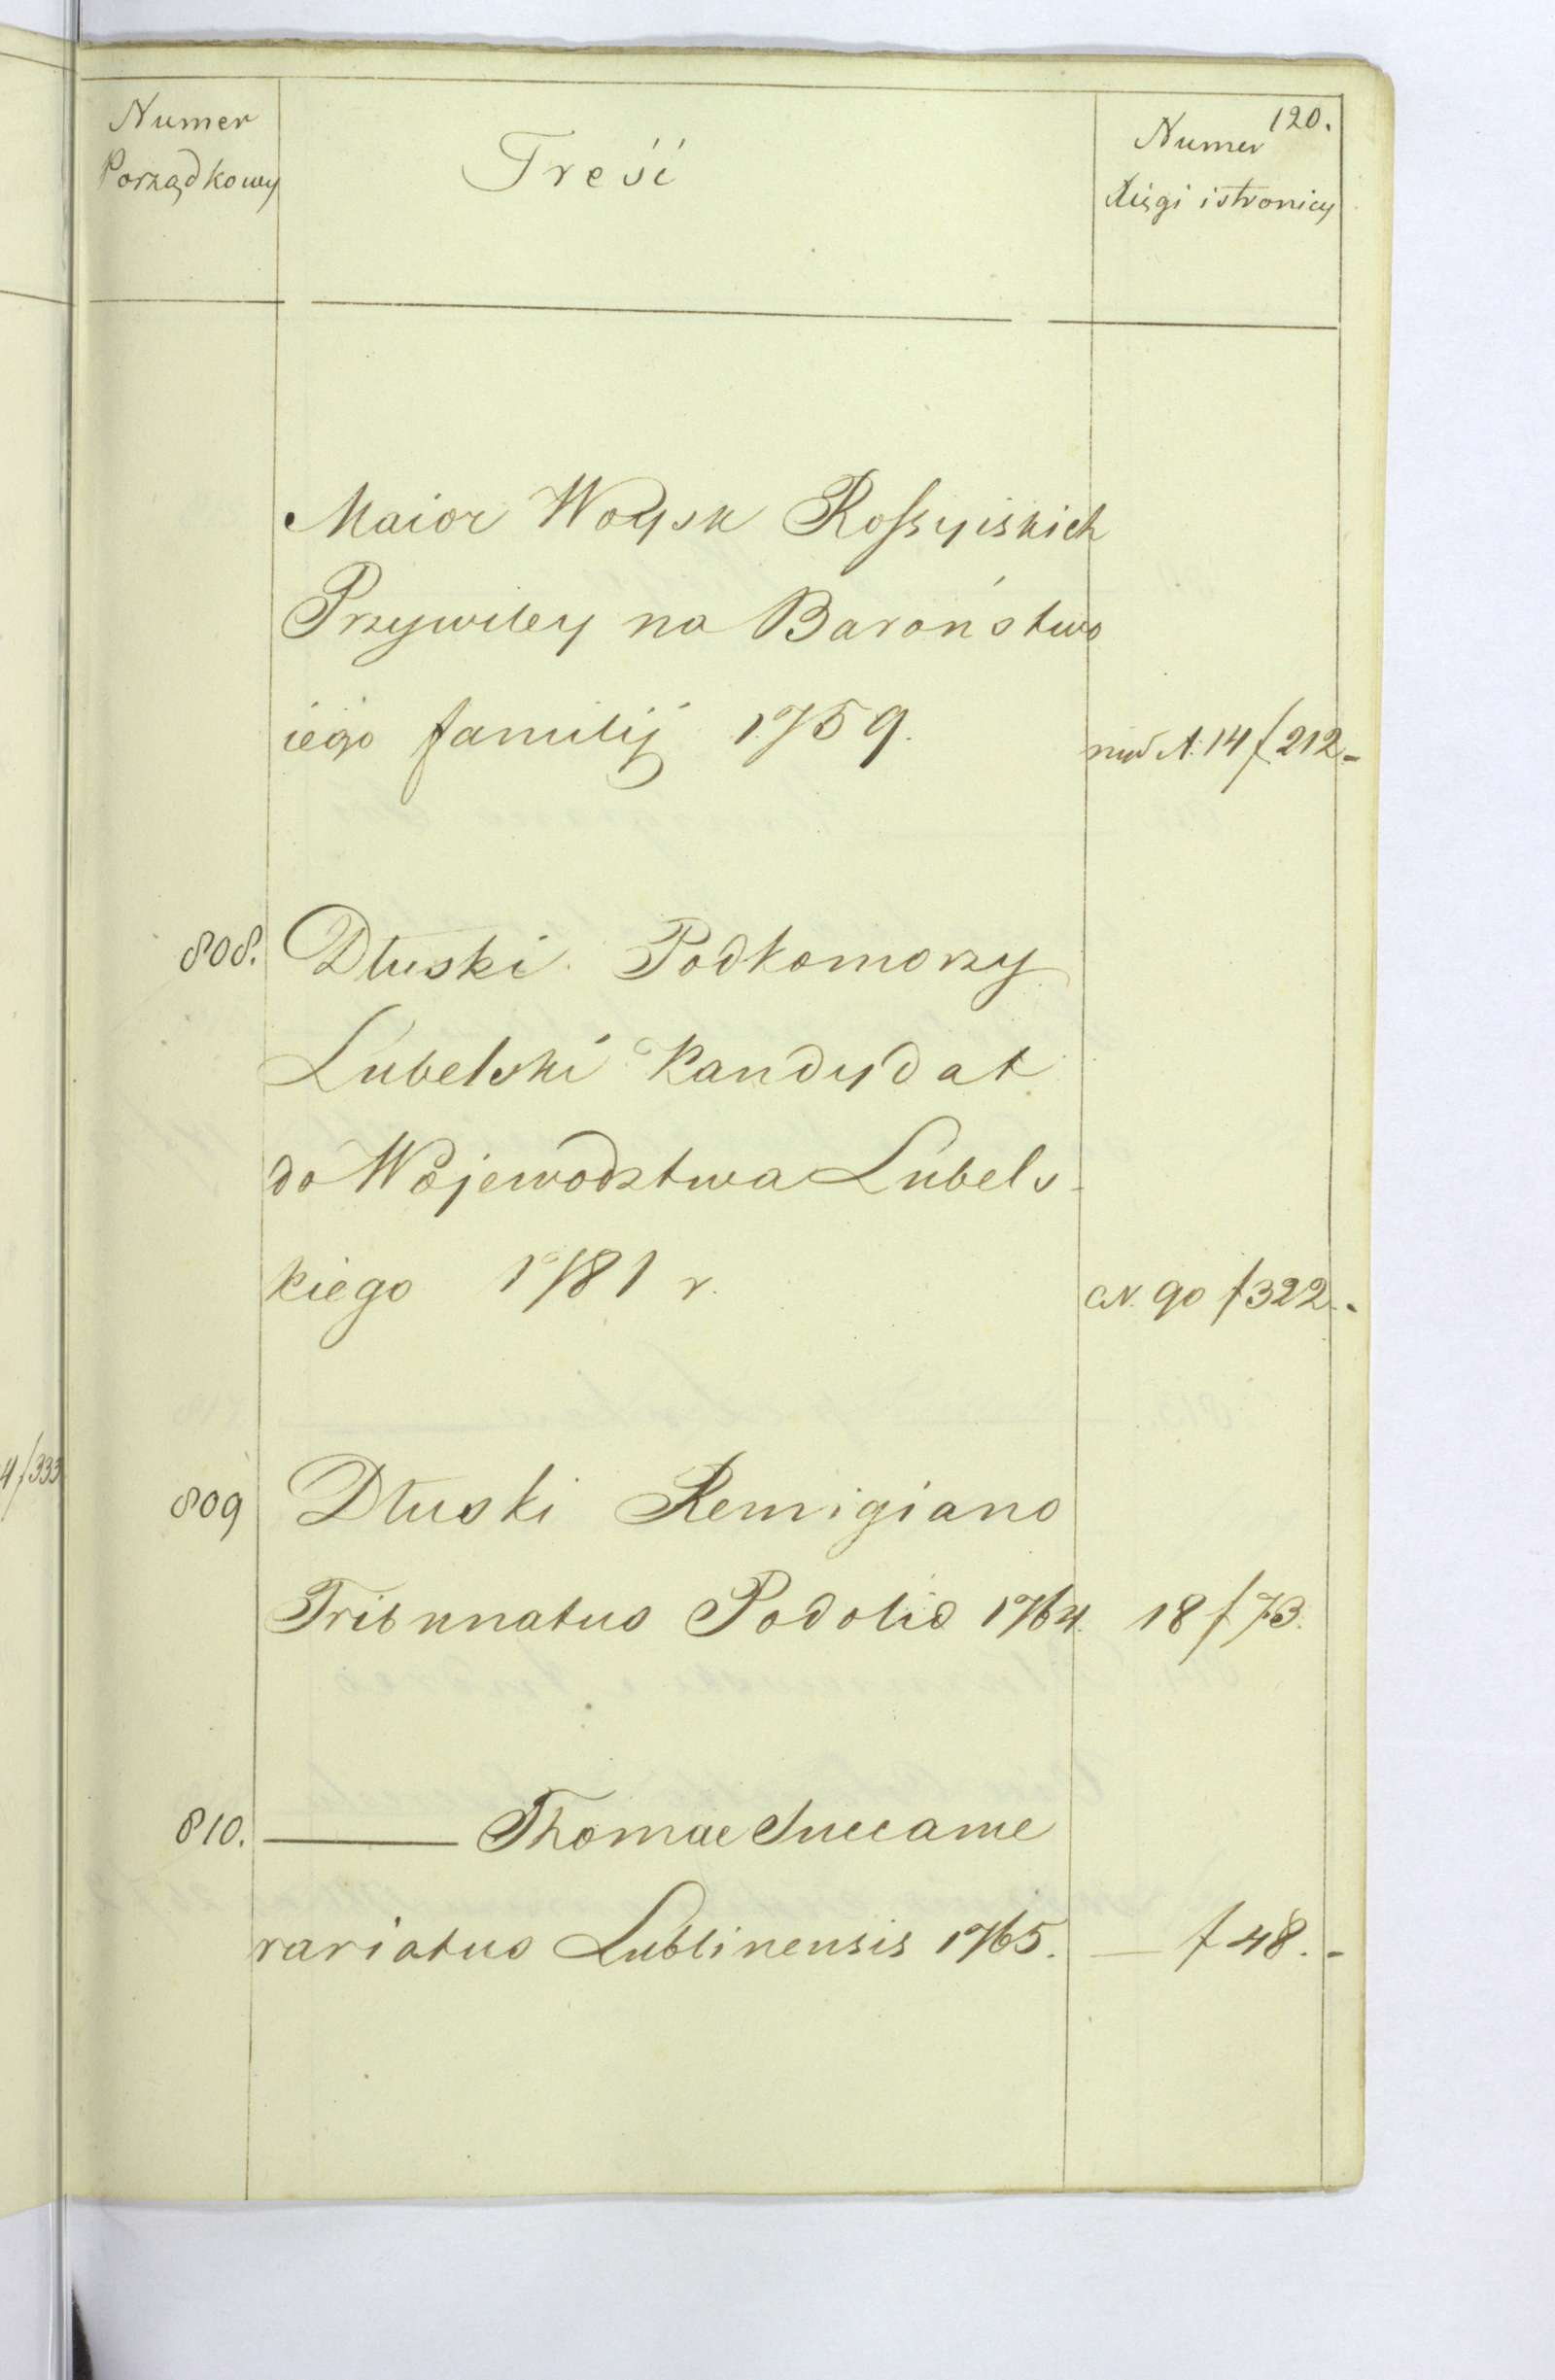 120.
Numer
Porządkowy
Treść
Numer
Xięgi i stronicy
Maior Woysk Rossyiskich
Przywiley na Baroństwo
iego familij 1759.
A. 14 f. 212 -
808. Dłuski Podkomorzy
Lubelski Kandydat
do Wojewodztwa Lubels-
kiego 1781 r.
N. 90 f 322. -
4/333
809 Dłuski Remigiano
Tribunatus Podolia 1764. 18 f 73.
810. ——— Thomae Succame
rariatus Lublinensis 1765. — f 48. -